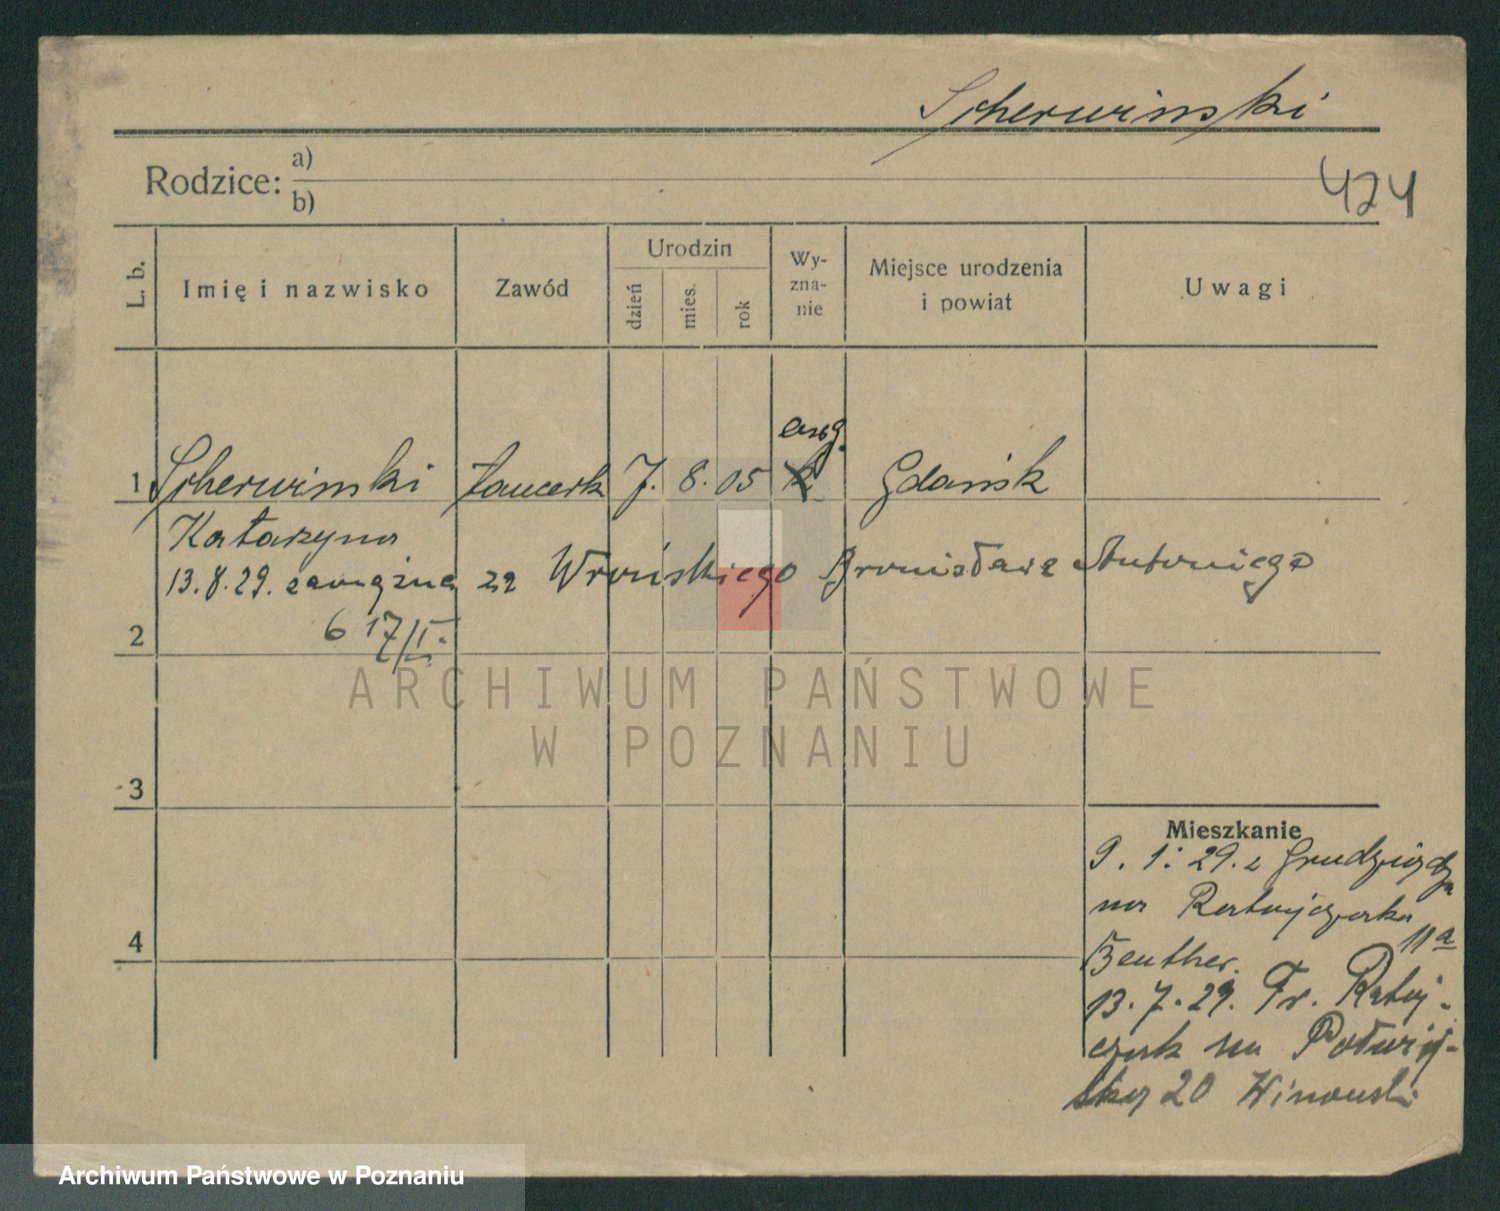 Scherwinski
424
Rodzice: a)
b)
L. b.
Imię i nazwisko
Zawód
Urodzin
dzień
mies.
rok
Wy-
zna-
nie
Miejsce urodzenia
i powiat
Uwagi
ewg.
1 Scherwinski tancerk 7. 8. 05 k Gdańsk
Katarzyna
13.8.29. zamężna za Wrońskiego Bronisława Antoniego
6 17/II.
2
ARCHIWUM PAŃSTWOWE
W POZNANIU
3
Mieszkanie
9. 1. 29. z Grudziądza
na Ratajczaka
11a
4
Beuther.
13. 7. 29. Fr. Rataj-
czak na
20
Archiwum Państwowe w Poznaniu